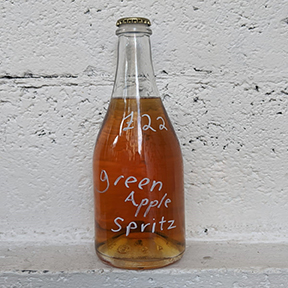 1/22
green
Apple
Spritz